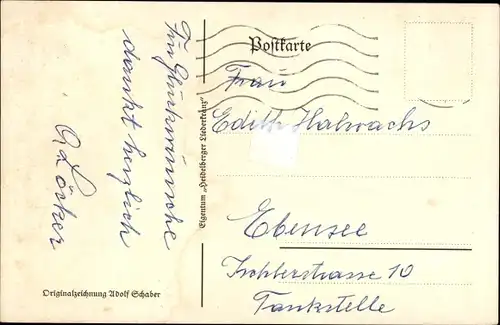 Für Glückwünsche
dankt herzlich
Postkarte
Frau
Edith Halwachs
Ebensee
Ischlerstrasse 10
Tankstelle
Eigentum „Heidelberger Liederkranz"
Originalzeichnung Adolf Schaber